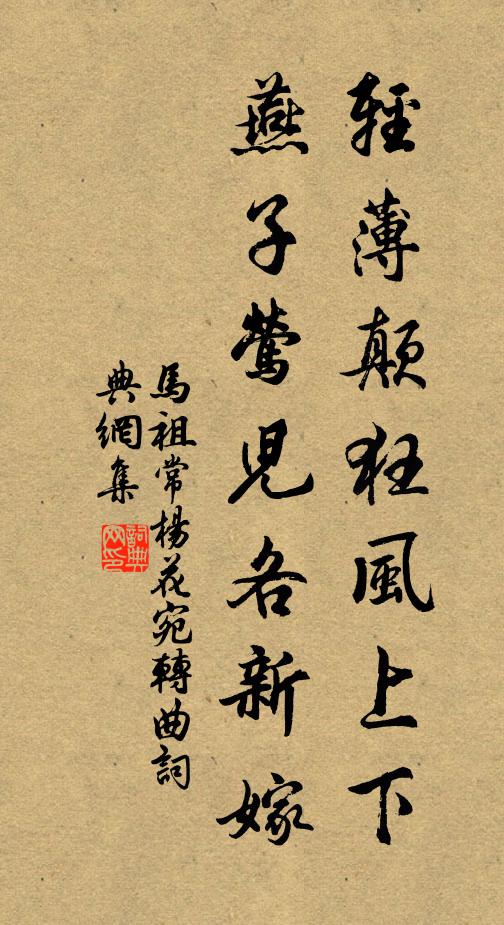 輕薄顛狂風上下
燕子鶯兒各新嫁
馬祖常楊花宛轉曲詞
典網集
詞典
网印